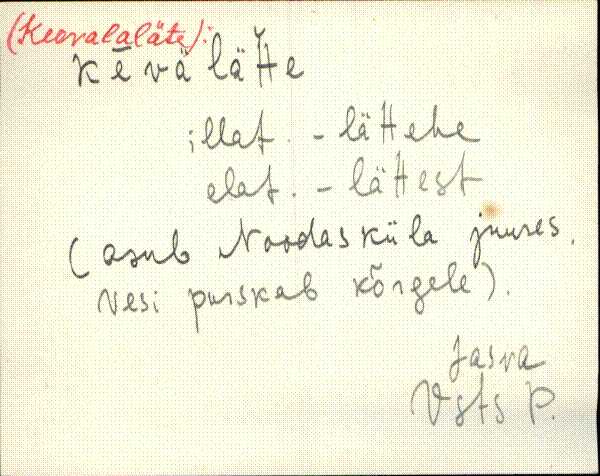 (Keevalaläte):
kēvälätte
illat. - lättehe
elat. - lättest
(asub Noodasküla juures.
Vesi purskab kõrgele).
Jasva
Vsts P.